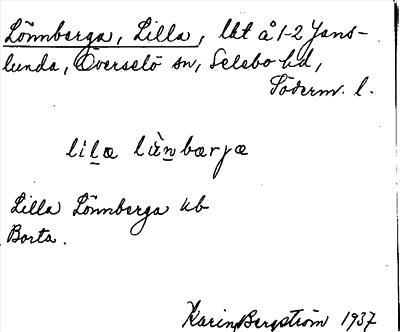 Lönnberga, Lilla, lht å 1-2 Jans-
lunda, Överselö sn, Selebo hd,
Söderm. l.
lilæ lùnbærjæ
Lilla Lönnberga ub
Borta.
Karin Bergström 1937